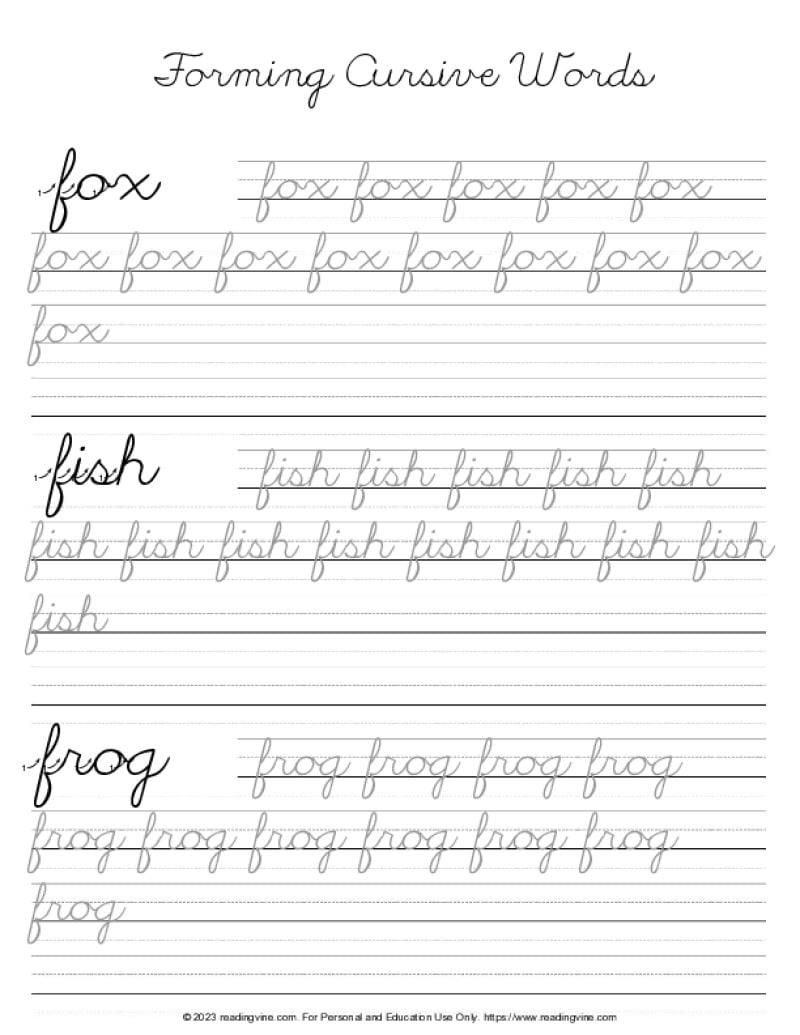 Forming Cursive Words
fox fox fox fox fox fox
fox fox fox fox fox fox fox fox
fox
fish fish fish fish fish fish
fish fish fish fish fish fish fish fish
fish
frog frog frog frog frog
frog frog frog frog frog frog
frog
© 2023 readingvine.com. For Personal and Education Use Only. https://www.readingvine.com